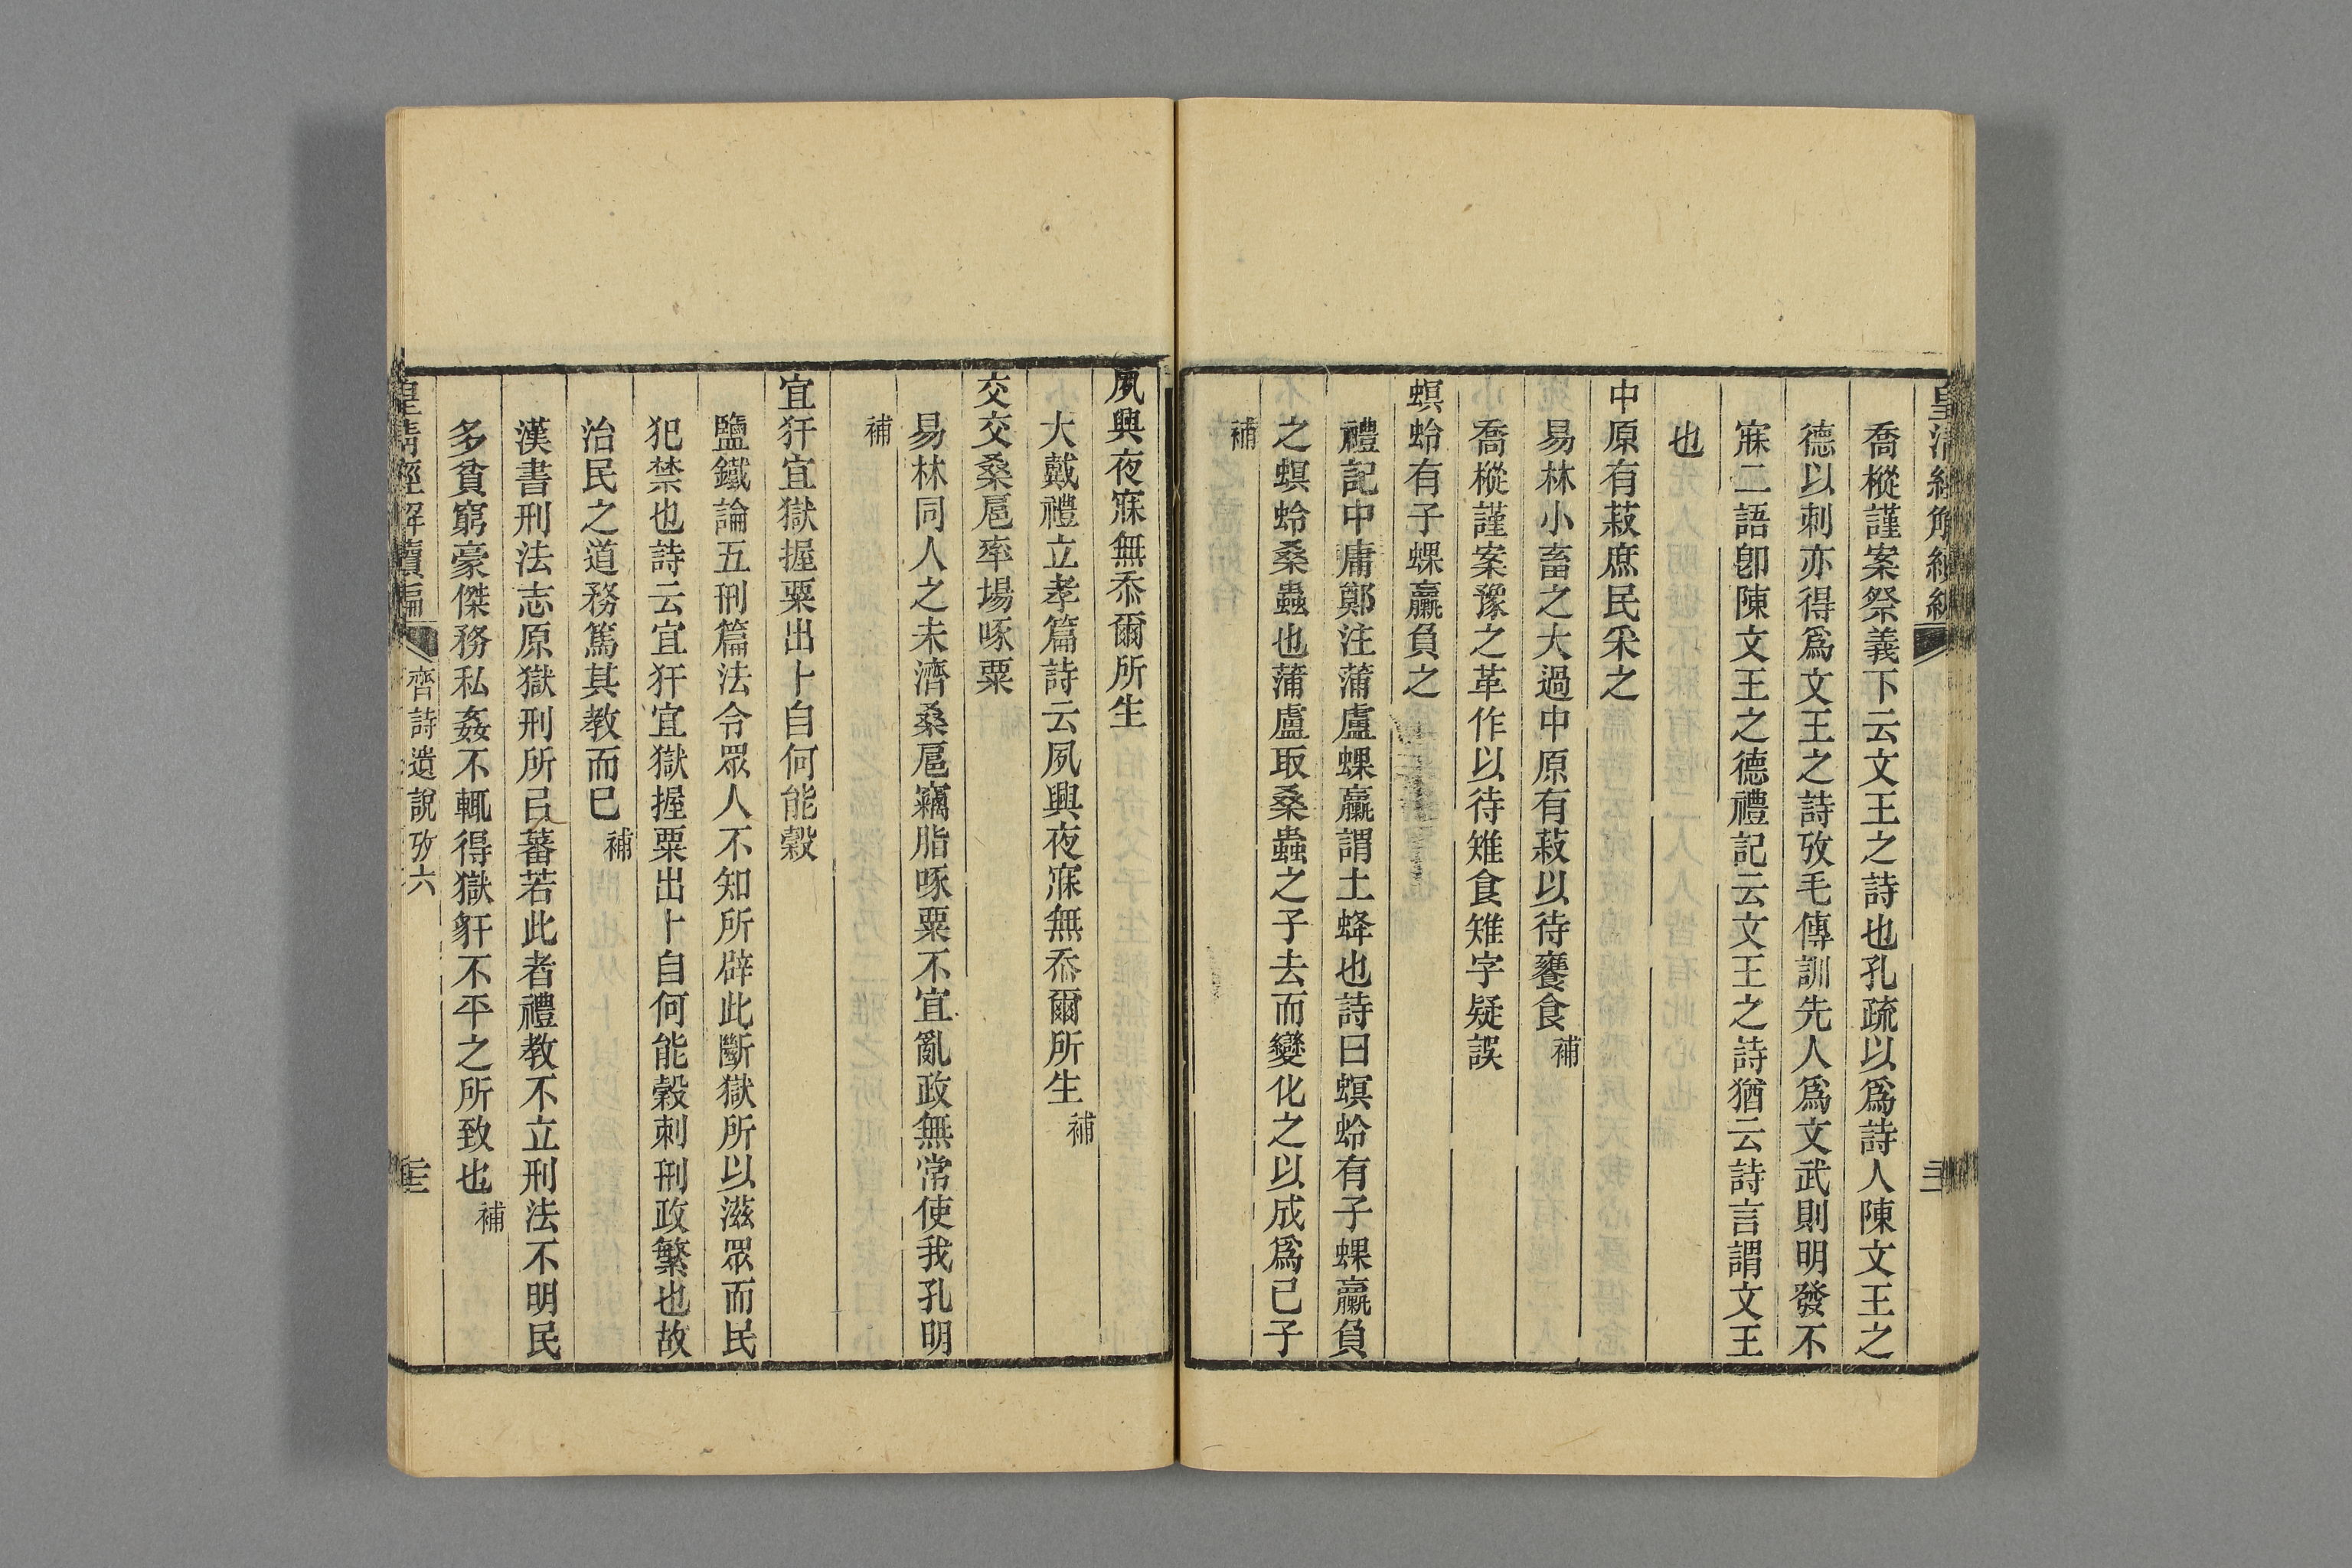 喬樅謹案祭義下云文王之詩也孔疏以爲詩人陳文王之
德以刺亦得爲文王之詩攷毛傳訓先人爲文武則明發不
寐二語卽陳文王之德禮記云文王之詩猶云詩言謂文王
也
中原有菽庶民采之
易林小畜之大過中原有菽以待饔食補
喬樅謹案豫之革作以待雉食雉字疑誤
螟蛉有子蜾蠃負之
禮記中庸鄭注蒲盧蜾蠃謂土蜂也詩曰螟蛉有子蜾蠃負
之螟蛉桑蟲也蒲盧取桑蟲之子去而變化之以成爲己子
補
夙興夜寐無忝爾所生
大戴禮立孝篇詩云夙興夜寐無忝爾所生補
交交桑扈率場啄粟
易林同人之未濟桑扈竊脂啄粟不宜亂政無常使我孔明
補
宜犴宜獄握粟出卜自何能穀
鹽鐵論五刑篇法令眾人不知所辟此斷獄所以滋眾而民
犯禁也詩云宜犴宜獄握粟出卜自何能穀刺刑政繁也故
治民之道務篤其教而已補
漢書刑法志原獄刑所㠯蕃若此者禮教不立刑法不明民
多貧窮豪傑務私姦不輒得獄豻不平之所致也補
皇清經解續編 齊詩遺說攷六